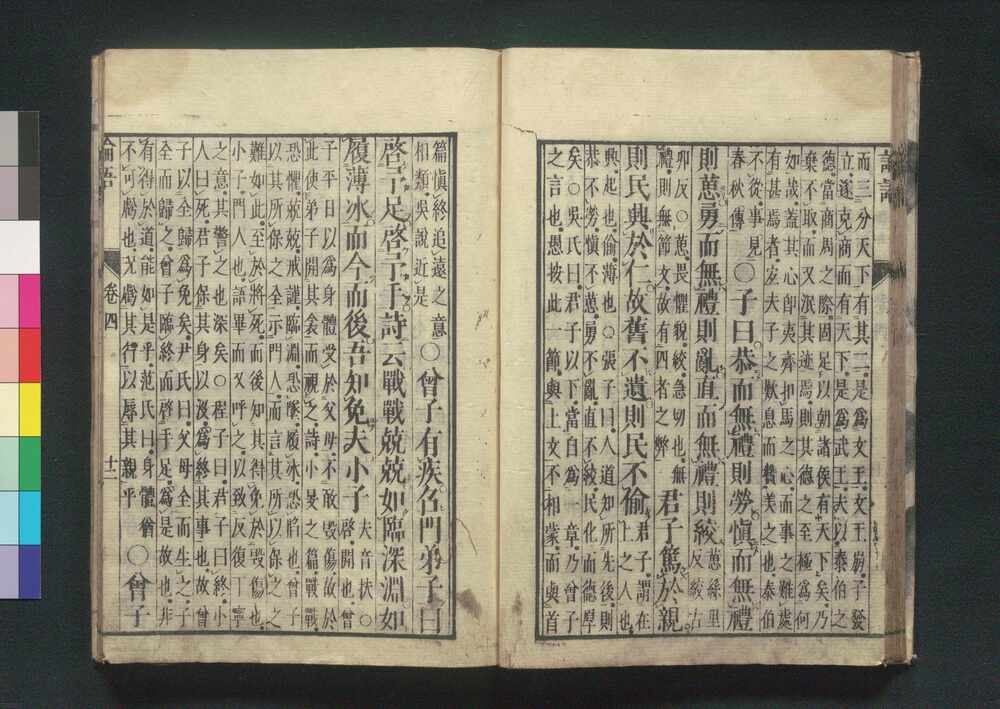 而三分天下有其二是爲文王文王崩子發
立遂克商而有天下是爲武王夫以泰伯之
德當商周之際固足以朝諸侯有天下矣乃
棄不取而又泯其迹焉則其德之至極爲何
如哉蓋其心卽夷齊扣馬之心而事之難處
有甚焉者宜夫子之歎息而贊美之也泰伯
不從事見
春秋傳
〇子曰恭而無禮則勞愼而無禮
則葸勇而無禮則亂直而無禮則絞
葸絲里
反絞古
卯反〇葸畏懼貌絞急切也無
禮則無節文故有四者之弊
君子篤於親
則民興於仁故舊不遺則民不偷
君子謂在
上之人也
興起也偷薄也〇張子曰人道知所先後則
恭不勞愼不葸勇不亂直不絞民化而德厚
矣〇吳氏曰君子以下當自爲一章乃曾子
之言也愚按此一節與上文不相蒙而與首
篇愼終追遠之意
相類吳說近是
〇曾子有疾召門弟子曰
啓予足啓予手詩云戰戰兢兢如臨深淵如
履薄冰而今而後吾知免夫小子
夫音扶〇
啓開也曾
子平日以爲身體受於父母不敢毀傷故於
此使弟子開其衾而視之詩小旻之篇戰戰
恐懼兢兢戒謹臨淵恐墜履冰恐陷也曾子
以其所保之全示門人而言其所以保之之
難如此至於將死而後知其得免於毀傷也
小子門人也語畢而又呼之以致反復丁寧
之意其警之也深矣〇程子曰君子曰終小
人曰死君子保其身以沒爲終其事也故曾
子以全歸爲免矣尹氏曰父母全而生之子
全而歸之曾子臨終而啓手足爲是故也非
有得於道能如是乎范氏曰身體猶
不可虧也况虧其行以辱其親乎
〇曾子
論語 卷四 十二